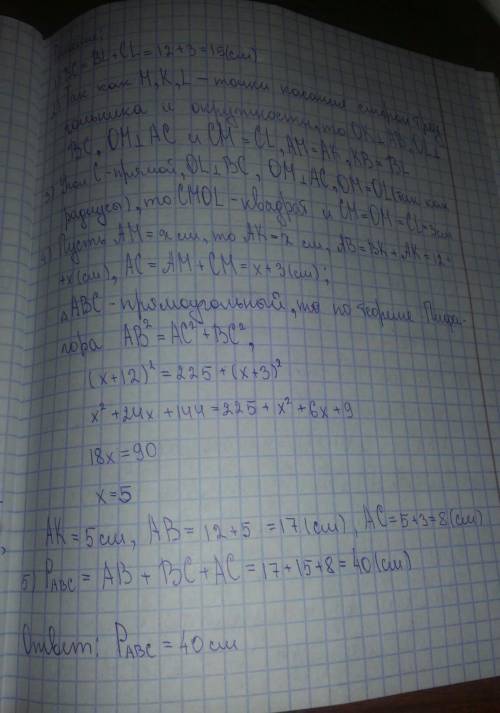 Решение:
1) BC = BL + CL = 12 + 3 = 15 (см)
2) Так как M, K, L – точки касания сторон треу-
гольника и окружности, то OK ⊥ AB, OL ⊥
BC, OM ⊥ AC и CM = CL, AM = AK, KB = BL
3) Угол C – прямой, OL ⊥ BC, OM ⊥ AC, OM = OL (так как
радиусы), то CMOL – квадрат и CM = OM = CL = 3 см
4) Пусть AM = x см, то AK = x см, AB = BK + AK = 12 +
+ x (см), AC = AM + CM = x + 3 (см);
△ABC – прямоугольный, то по теореме Пифа-
гора AB² = AC² + BC²,
(x+12)² = 225 + (x+3)²
x² + 24x + 144 = 225 + x² + 6x + 9
18x = 90
x = 5
AK = 5 см, AB = 12 + 5 = 17 (см), AC = 5 + 3 = 8 (см)
5) P_ABC = AB + BC + AC = 17 + 15 + 8 = 40 (см)
Ответ: P_ABC = 40 см